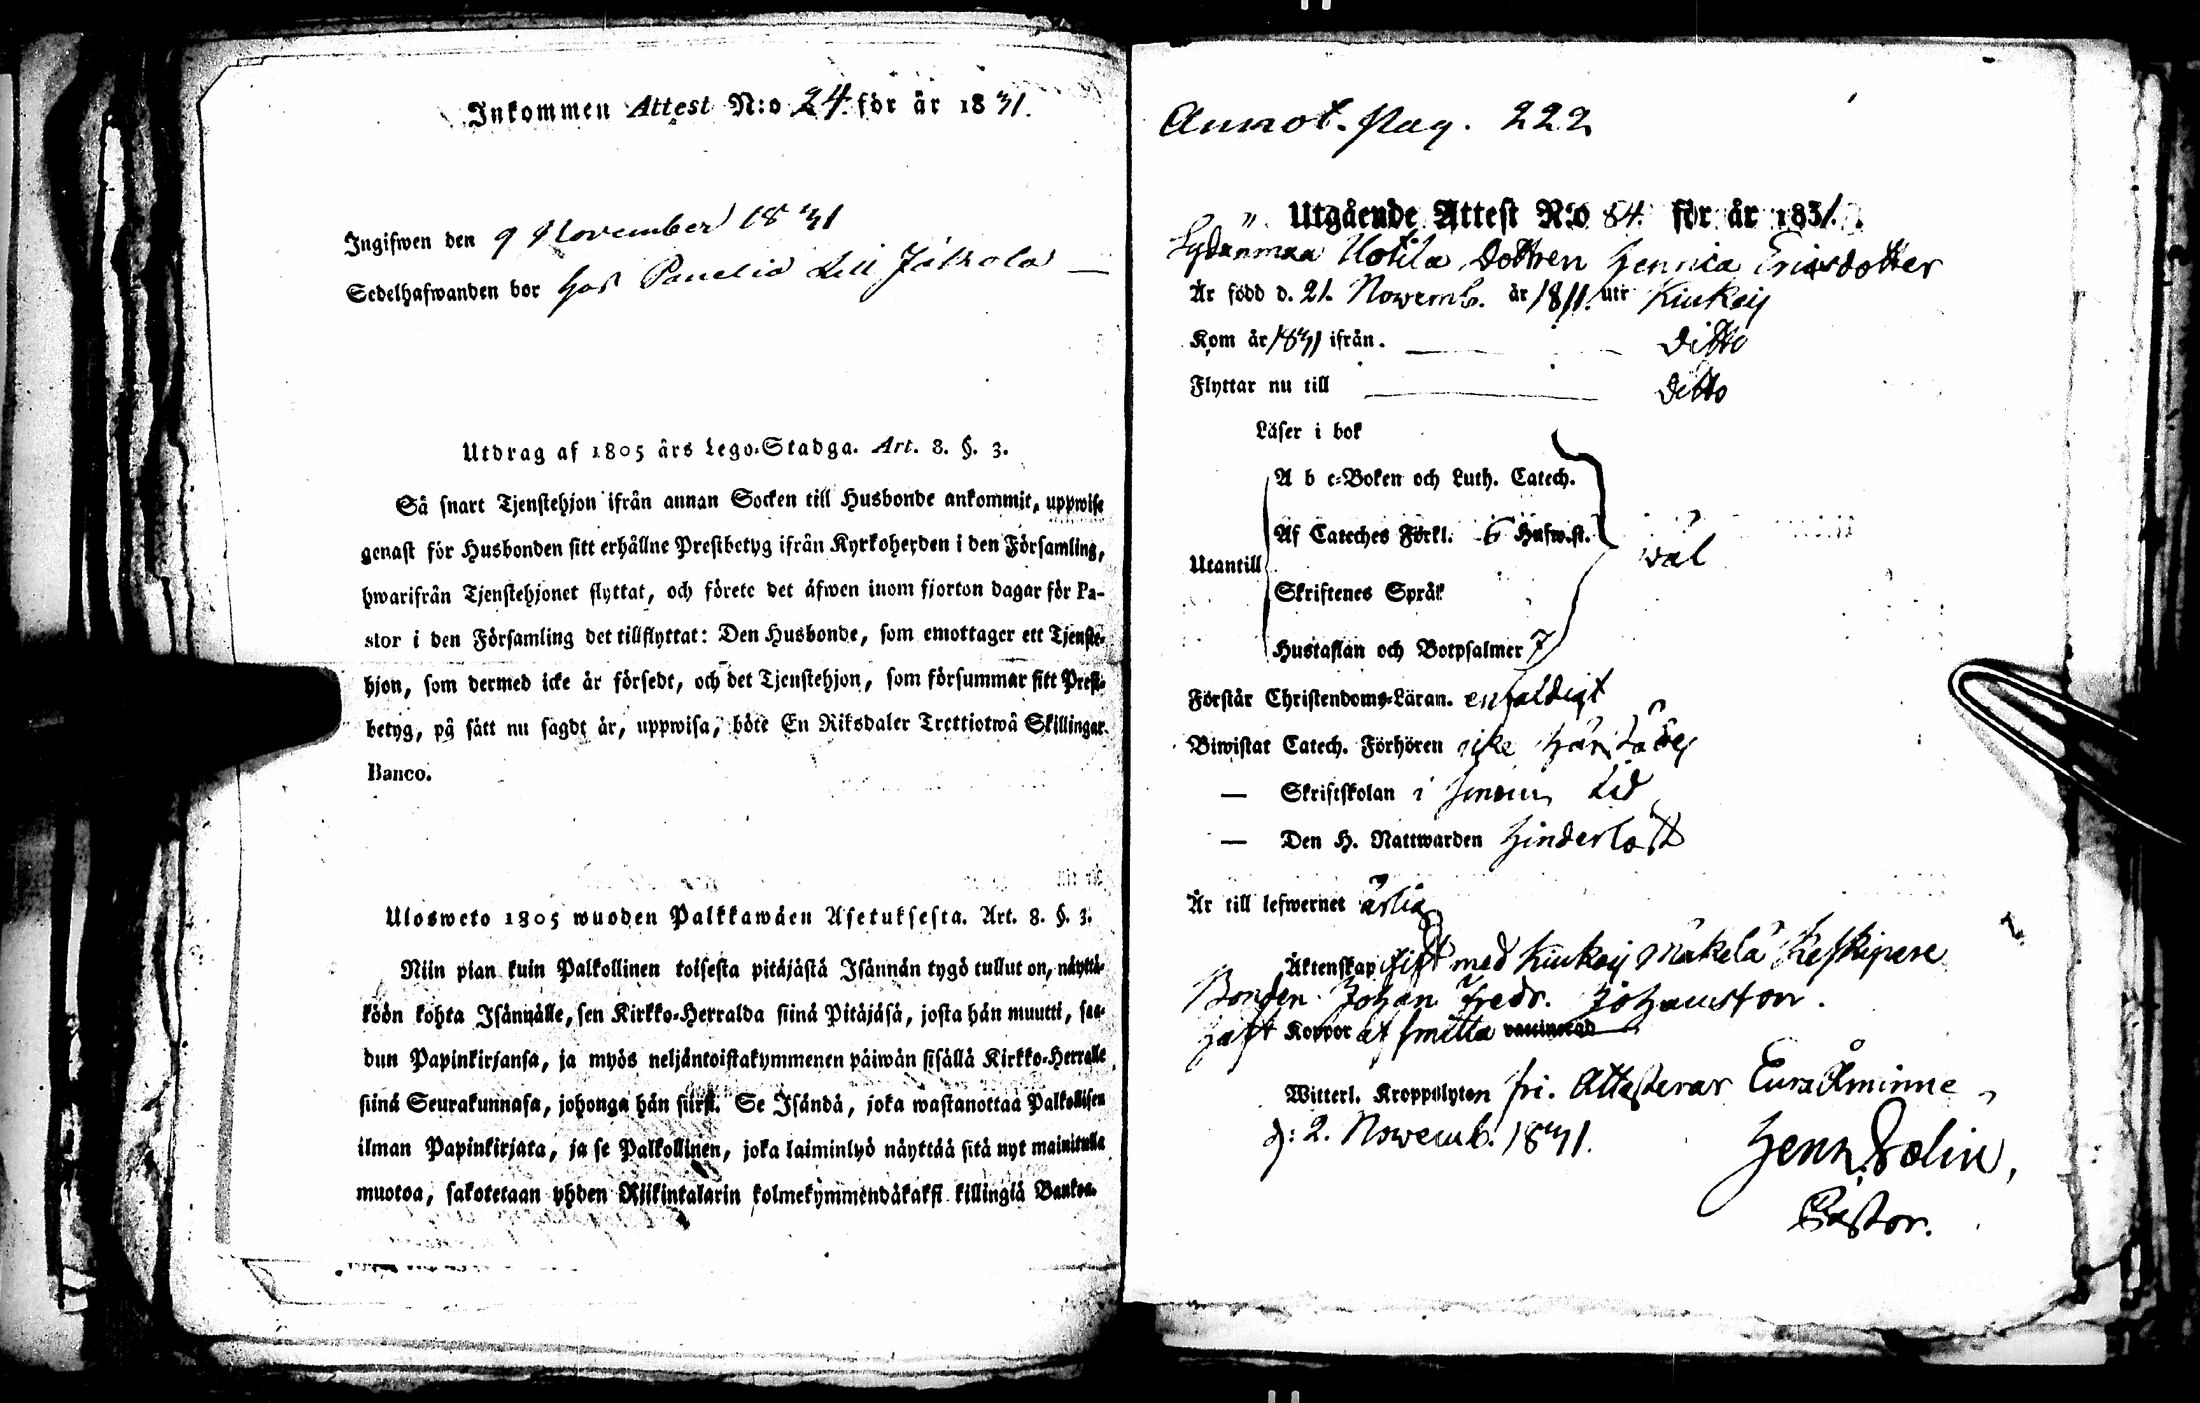 Inkommen Attest N:o 24 för år 1831.
Ingifwen den 9 November 1831
Sedelhafwanden bor hos Panelia Lill Jålkola
Utdrag af 1805 års Lego-Stadga. Art. 8. §. 3.
Så snart Tjenstehjon ifrån annan Socken till Husbonde ankommit, uppwise
genast för Husbonden sitt erhållne Prestbetyg ifrån Kyrkoherden i den Församling,
hwarifrån Tjenstehjonet flyttat, och förete det äfwen inom fjorton dagar för Pa-
stor i den Församling det tillflyttat: Den Husbonde, som emottager ett Tjenste-
hjon, som dermed icke är försedt, och det Tjenstehjon, som försummar sitt Prest-
betyg, på sätt nu sagdt är, uppwisa, böte En Riksdaler Trettiotwå Skillingar
Banco.
Ulosweto 1805 wuoden Palkkawäen Asetuksesta. Art. 8. §. 3.
Niin pian kuin Palkollinen toisesta pitäjästä Isännän tygö tullut on, näyttä-
köön kohta Isännälle, sen Kirkko-Herralda siinä Pitäjäsä, josta hän muutti, saa-
dun Papinkirjansa, ja myös neljäntoistakymmenen päiwän sisällä Kirkko-Herralle
siinä Seurakunnasa, johonga hän siirsi. Se Isändä, joka wastanottaa Palkollisen
ilman Papinkirjata, ja se Palkollinen, joka laiminlyö näyttää sitä nyt mainitulla
muotoa, sakotetaan yhden Riikintalarin kolmekymmendäkaksi killingiä Bankoa.
Annot. Pag. 222
Utgående Attest N:o 84. för år 1831.
Sydänmaa Uotila Dottren Henrica Ericsdotter
Är född d. 21. Novemb. år 1811. uti Kiukais
Kom år 1831 ifrån. Ditto
Flyttar nu till Ditto
Läser i bok
A b c-Boken och Luth. Catech.
Af Cateches Förkl. 6 Hufw.st.
wäl
Utantill
Skriftenes Språk
Hustaflan och Botpsalmer 7
Förstår Christendoms-Läran. enfaldigt
Biwistat Catech. Förhören icke härstädes
— Skriftskolan i sinom tid
— Den H. Nattwarden Hinderlöst
Är till lefwernet ärlig
Äktenskap gift med Kiukais Mäkelä Keskipere
Bonden Johan Fredr. Johansson.
Haft Koppor af smitta vaccinerad
Witterl. Kroppslyten fri. Attesterar Eura Åminne
d: 2. Novemb. 1831.
Henr. Polin,
Pastor.